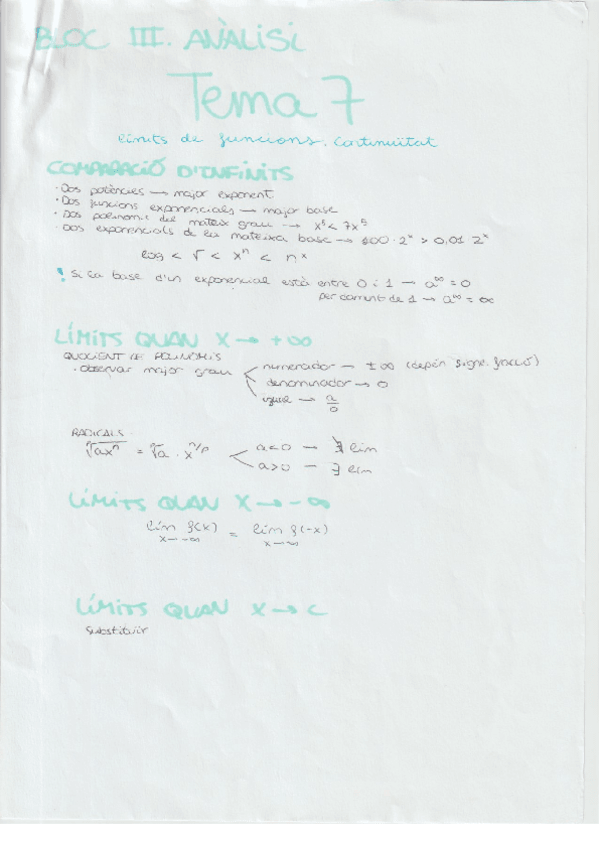 BLOC III. ANÀLISI
Tema 7
límits de funcions. Continuïtat
COMPARACIÓ D'INFINITS
· Dos potències → major exponent
· Dos funcions exponencials → major base
· Dos polinomis del mateix grau → x⁵ < 7x⁵
· Dos exponencials de la mateixa base → 100 · 2ˣ > 0,01 2ˣ
log < √ < xⁿ < nˣ
! Si la base d'un exponencial està entre 0 i 1 → a^∞ = 0
per damunt de 1 → a^∞ = ∞
LÍMITS QUAN X → +∞
QUOCIENT DE POLINOMIS
· observar major grau
numerador → ±∞ (depén signe fracció)
denominador → 0
igual → a/b
RADICALS
ᵖ√axⁿ = ᵖ√a · x^n/p
a<0 – ∄ lim
a>0 – ∃ lim
LÍMITS QUAN X → -∞
lim f(x) = lim f(-x)
x→-∞ x→∞
LÍMITS QUAN X → C
Substituir